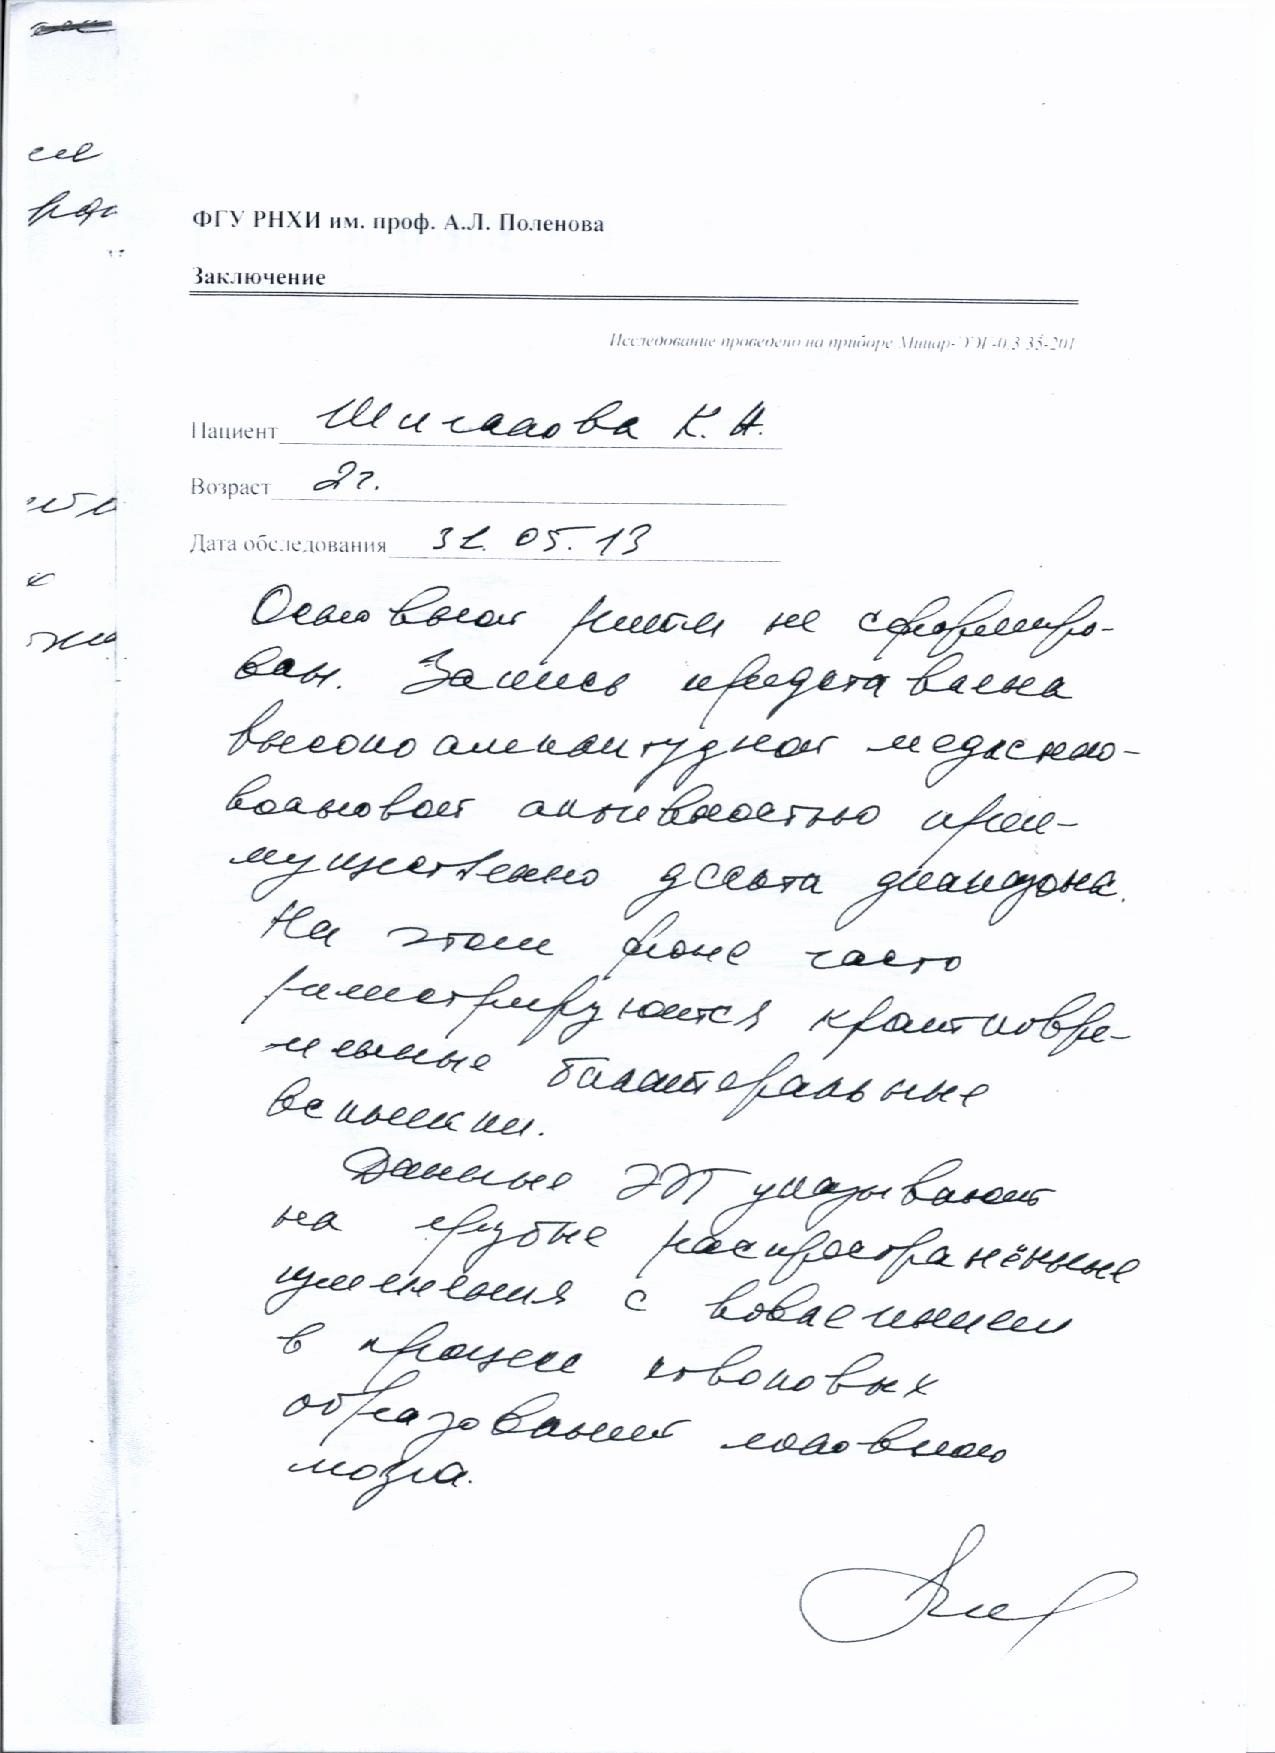 ФГУ РНХИ им. проф. А.Л. Поленова
Заключение
Исследование проведено на приборе Мицар-ЭЭГ-03 35-201
Пациент К. Н.
Возраст 2 г.
Дата обследования 31. 05. 13
Основной ритм не сформиро-
ван. Запись представлена
высокоамплитудной медленно-
волновой активностью преи-
мущественно дельта диапазона.
На этом фоне часто
регистрируются кратковре-
менные билатеральные
вспышки.
Данные ЭЭГ указывают
на грубые распространённые
изменения с вовлечением
в процесс стволовых
образований головного
мозга.